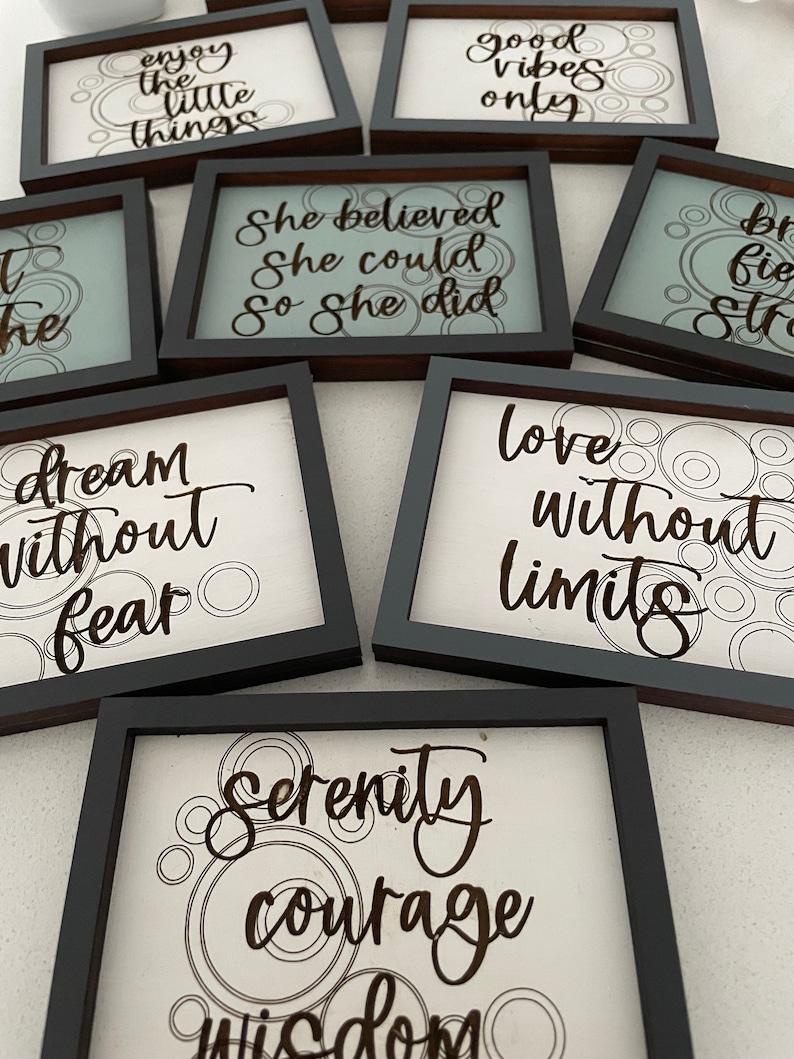 enjoy
the
little
things
good
vibes
only
she believed
she could
so she did
dream
without
fear
love
without
limits
serenity
courage
wisdom